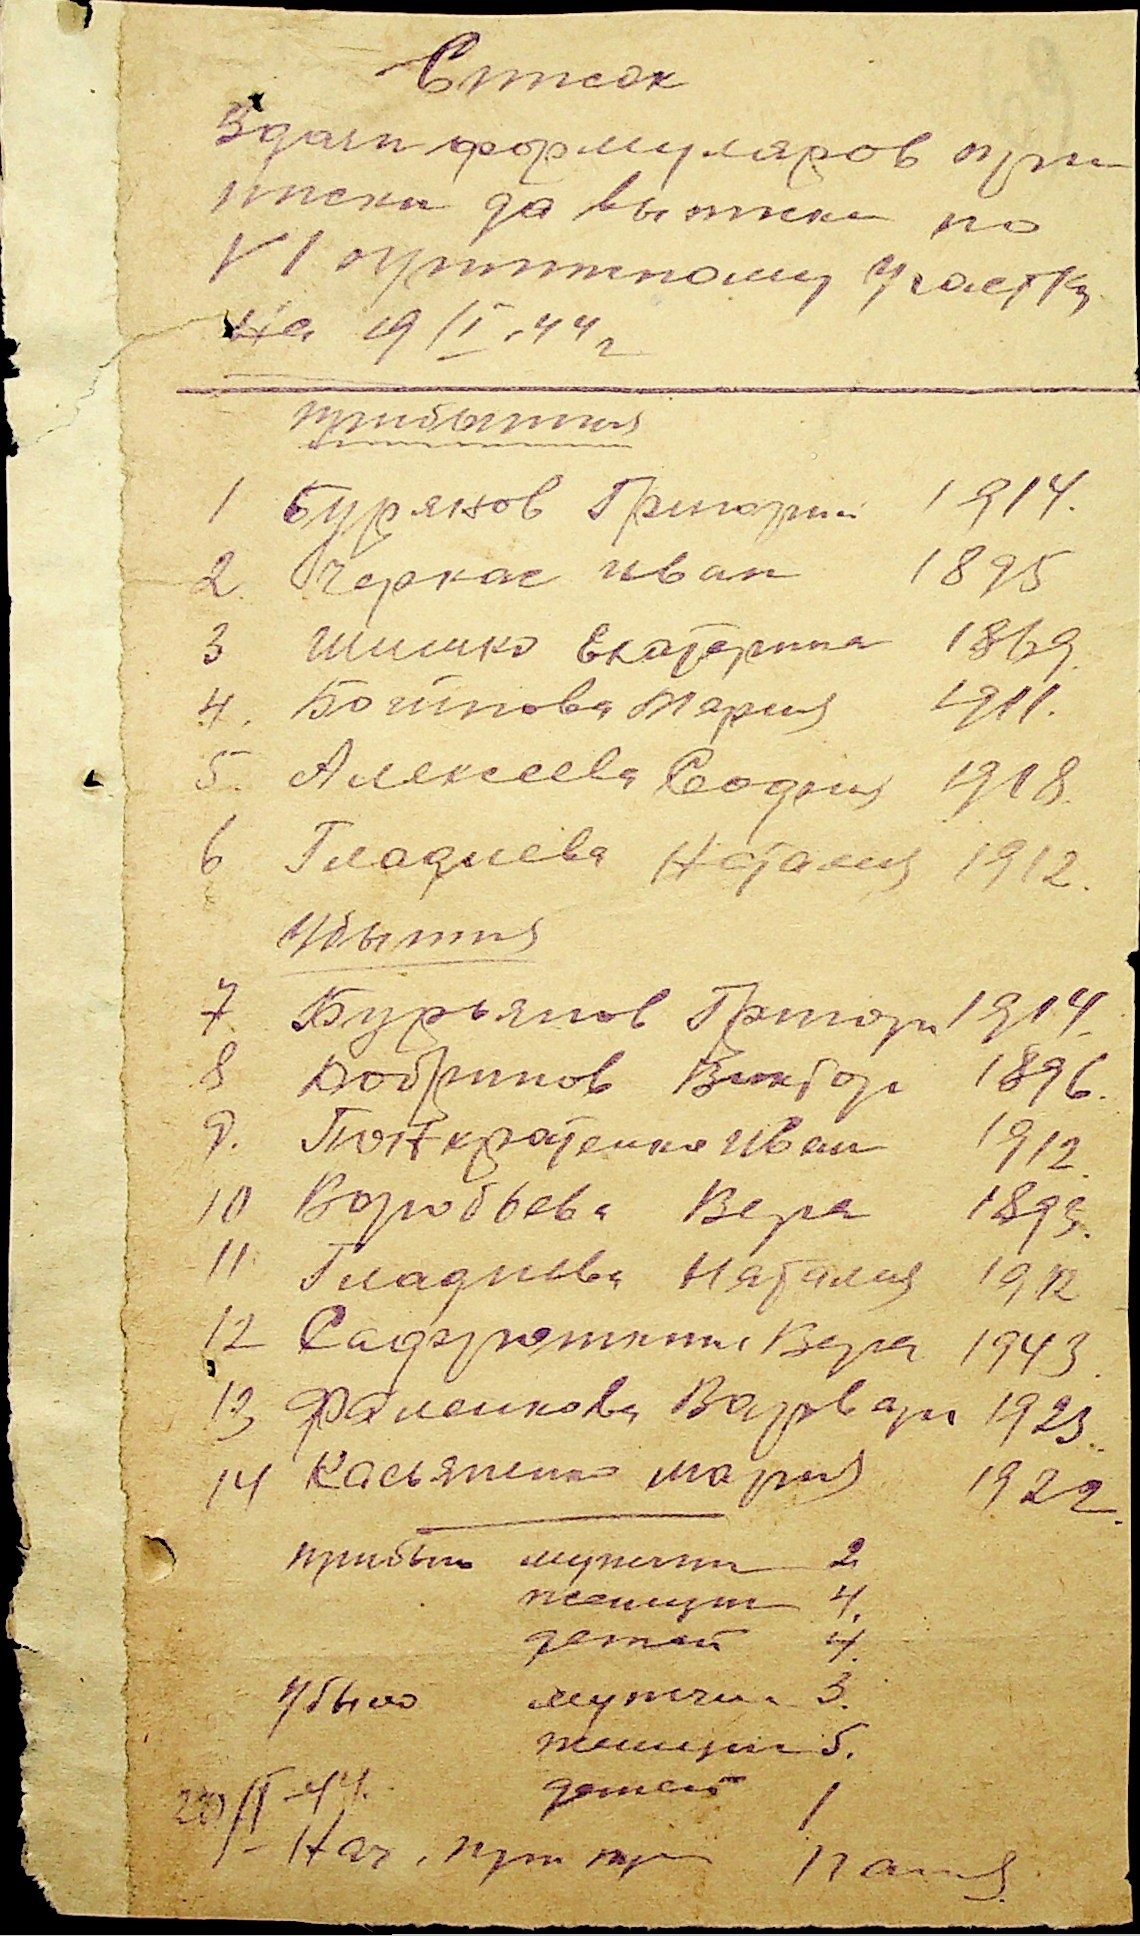 Список
Здачи формуляров при
писки да выписки по
VI прописному участку
на 19/I.44 г
прибытия
1 Буряков Григорий 1914.
2. Черкас Иван 1895
3 Шишко Екатерина 1869.
4. Мария 1911.
5. Алексеева София 1918.
6 Гладиева Наталия 1912.
Убытия
7 Бурьянов Григори 1914.
8 Добринов Виктор 1896.
9. Понкратенко Иван 1912
10 Воробьева Вера 1893.
11 Гладиева Наталия 1912
12 Вера 1943.
13 Фаленкова Варвара 1923.
14 Касьяненко Мария 1922.
прибыло мужчин 2
женщин 4.
детей 4.
Убыло мужчин 3.
женщин 5.
детей 1
20/II-44.
Нач.